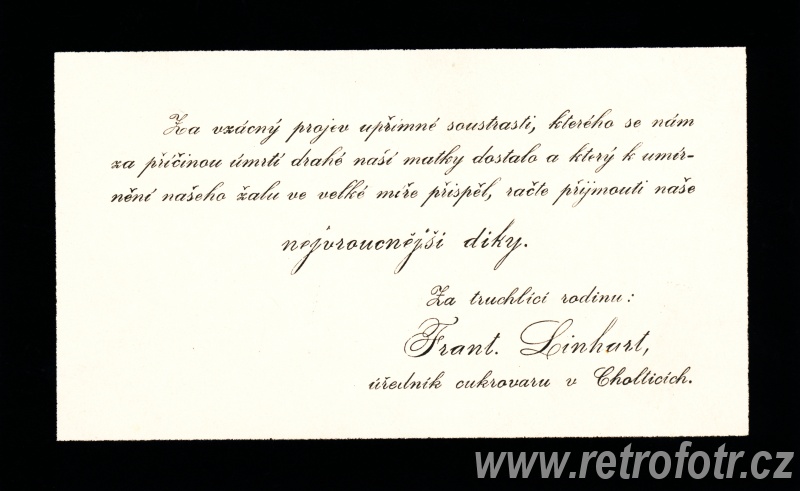 Za vzácný projev upřimné soustrasti, kterého se nám
za příčinou úmrtí drahé naší matky dostalo a který k umír-
nění našeho žalu ve velké míře přispěl, račte přijmouti naše
nejvroucnější díky.
Za truchlící rodinu:
Frant. Linhart,
úředník cukrovaru v Cholticích.
www.retrofotr.cz